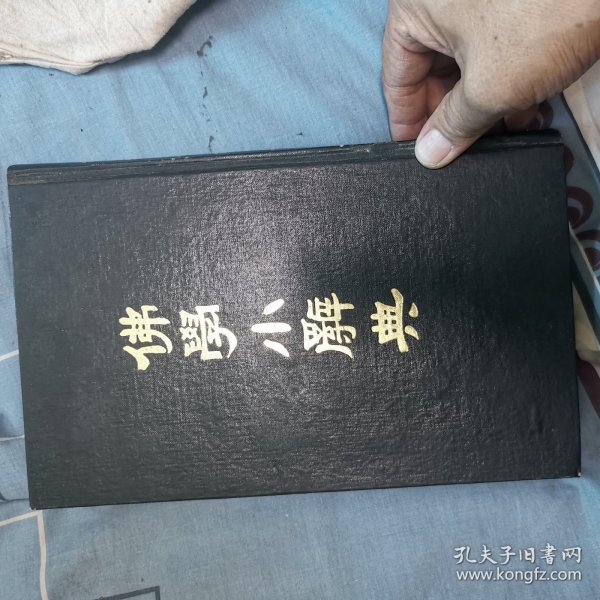 佛學小辭典
孔夫子旧書网
www.kongfz.com